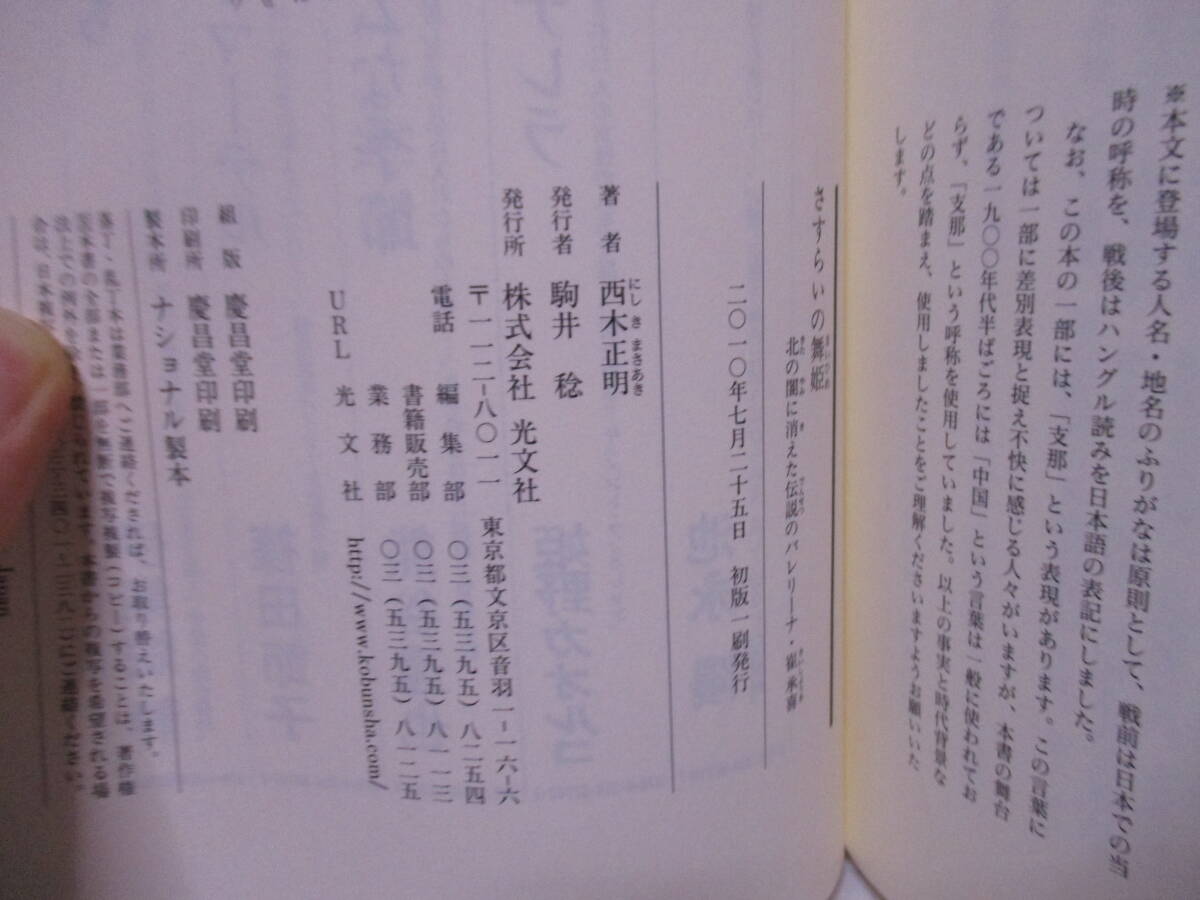 ※本文に登場する人名・地名のふりがなは原則として、戦前は日本での当
時の呼称を、戦後はハングル読みを日本語の表記にしました。
なお、この本の一部には、「支那」という表現があります。この言葉に
ついては一部に差別表現と捉え不快に感じる人々がいますが、本書の舞台
である一九〇〇年代半ばごろには「中国」という言葉は一般に使われてお
らず、「支那」という呼称を使用していました。以上の事実と時代背景な
どの点を踏まえ、使用しましたことをご理解くださいますようお願いいた
します。
さすらいの舞姫
北の闇に消えた伝説のバレリーナ・崔承喜
二〇一〇年七月二十五日 初版一刷発行
著者 西木正明
にしきまさあき
発行者 駒井 稔
発行所 株式会社 光文社
〒一一二-八〇一一 東京都文京区音羽一-一六-六
電話 編集部 〇三(五三九五)八二五四
書籍販売部 〇三(五三九五)八一一三
業務部 〇三(五三九五)八一二五
URL 光文社 http://www.kobunsha.com/
組版 慶昌堂印刷
印刷所 慶昌堂印刷
製本所 ナショナル製本
落丁・乱丁本は業務部へご連絡くだされば、お取り替えいたします。
本書の全部または一部を無断で複写複製(コピー)することは、著作権
法上での例外を除き、禁じられています。本書からの複写を希望される場
合は、日本複写 三四〇一-二三八二)にご連絡ください。